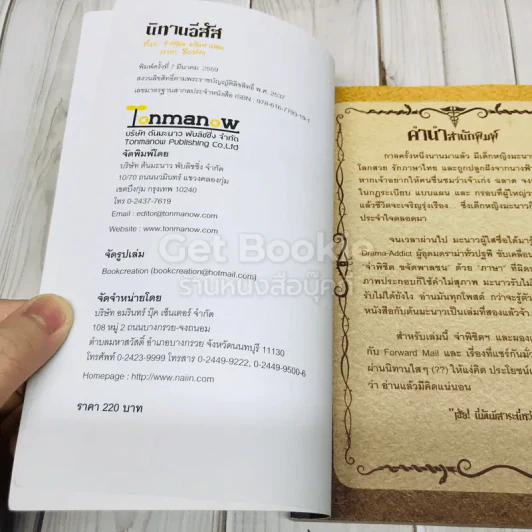 นิทานอีสัส
พิมพ์ครั้งที่ 7 มีนาคม 2559
สงวนลิขสิทธิ์ตามพระราชบัญญัติลิขสิทธิ์ พ.ศ. 2537
เลขมาตรฐานสากลประจำหนังสือ ISBN : 978-616-7793-19-1
Tonmanow
บริษัท ต้นมะนาว พับลิชชิ่ง จำกัด
Tonmanow Publishing Co,Ltd
จัดพิมพ์โดย
บริษัท ต้นมะนาว พับลิชชิ่ง จำกัด
10/70 ถนนนวมินทร์ แขวงคลองกุ่ม
เขตบึงกุ่ม กรุงเทพ 10240
โทร 0-2437-7619
Email : editor@tonmanow.com
Website : www.tonmanow.com
จัดรูปเล่ม
Bookcreation (bookcreation@hotmail.com)
จัดจำหน่ายโดย
บริษัท อมรินทร์ บุ๊ค เซ็นเตอร์ จำกัด
108 หมู่ 2 ถนนบางกรวย-จงถนอม
ตำบลมหาสวัสดิ์ อำเภอบางกรวย จังหวัดนนทบุรี 11130
โทรศัพท์ 0-2423-9999 โทรสาร 0-2449-9222, 0-2449-9500-6
Homepage : http://www.naiin.com
ราคา 220 บาท
คำนำสำนักพิมพ์
กาลครั้งหนึ่งนานมาแล้ว มีเด็กหญิงมะนา
โลกสวย รักภาษาไทย และถูกปลูกฝังจากนางฟ้า
หากเจ้าอยากให้คนชื่นชมว่าเจ้าเก่ง ฉลาด จง
ในกฎระเบียบ แบบแผน และ กรอบที่ผู้ใหญ่วา
แล้วชีวิตจะเจริญรุ่งเรือง... ซึ่งเด็กหญิงมะนาวก็
ประจำใจตลอดมา
จนเวลาผ่านไป มะนาวผู้ใสซื่อได้มารู้
Drama-Addict ผู้อุดมดราม่าทั่วปฐพี ขับเคลื่อน
"จ่าพิชิต ขจัดพาลชน" ด้วย "ภาษา" ที่ผิด
ภาพประกอบก็ใช้คำไม่สุภาพ มะนาวรับไม่
รับไม่ได้ยังไง อ่านมันทุกโพสต์ กว่าจะรู้ตัว
หนังสือกับต้นมะนาวเป็นเล่มที่สองแล้วจ้า
สำหรับเล่มนี้ จ่าพิชิตฯ และผองเ
กับ Forward Mail และ เรื่องที่แชร์กันมั่ว
ผ่านนิทานใสๆ (??) ให้แง่คิด ประโยชน์เ
ว่า อ่านแล้วมีคิดแน่นอน
Get Bookie
ร้านหนังสือบุ๊คกี้